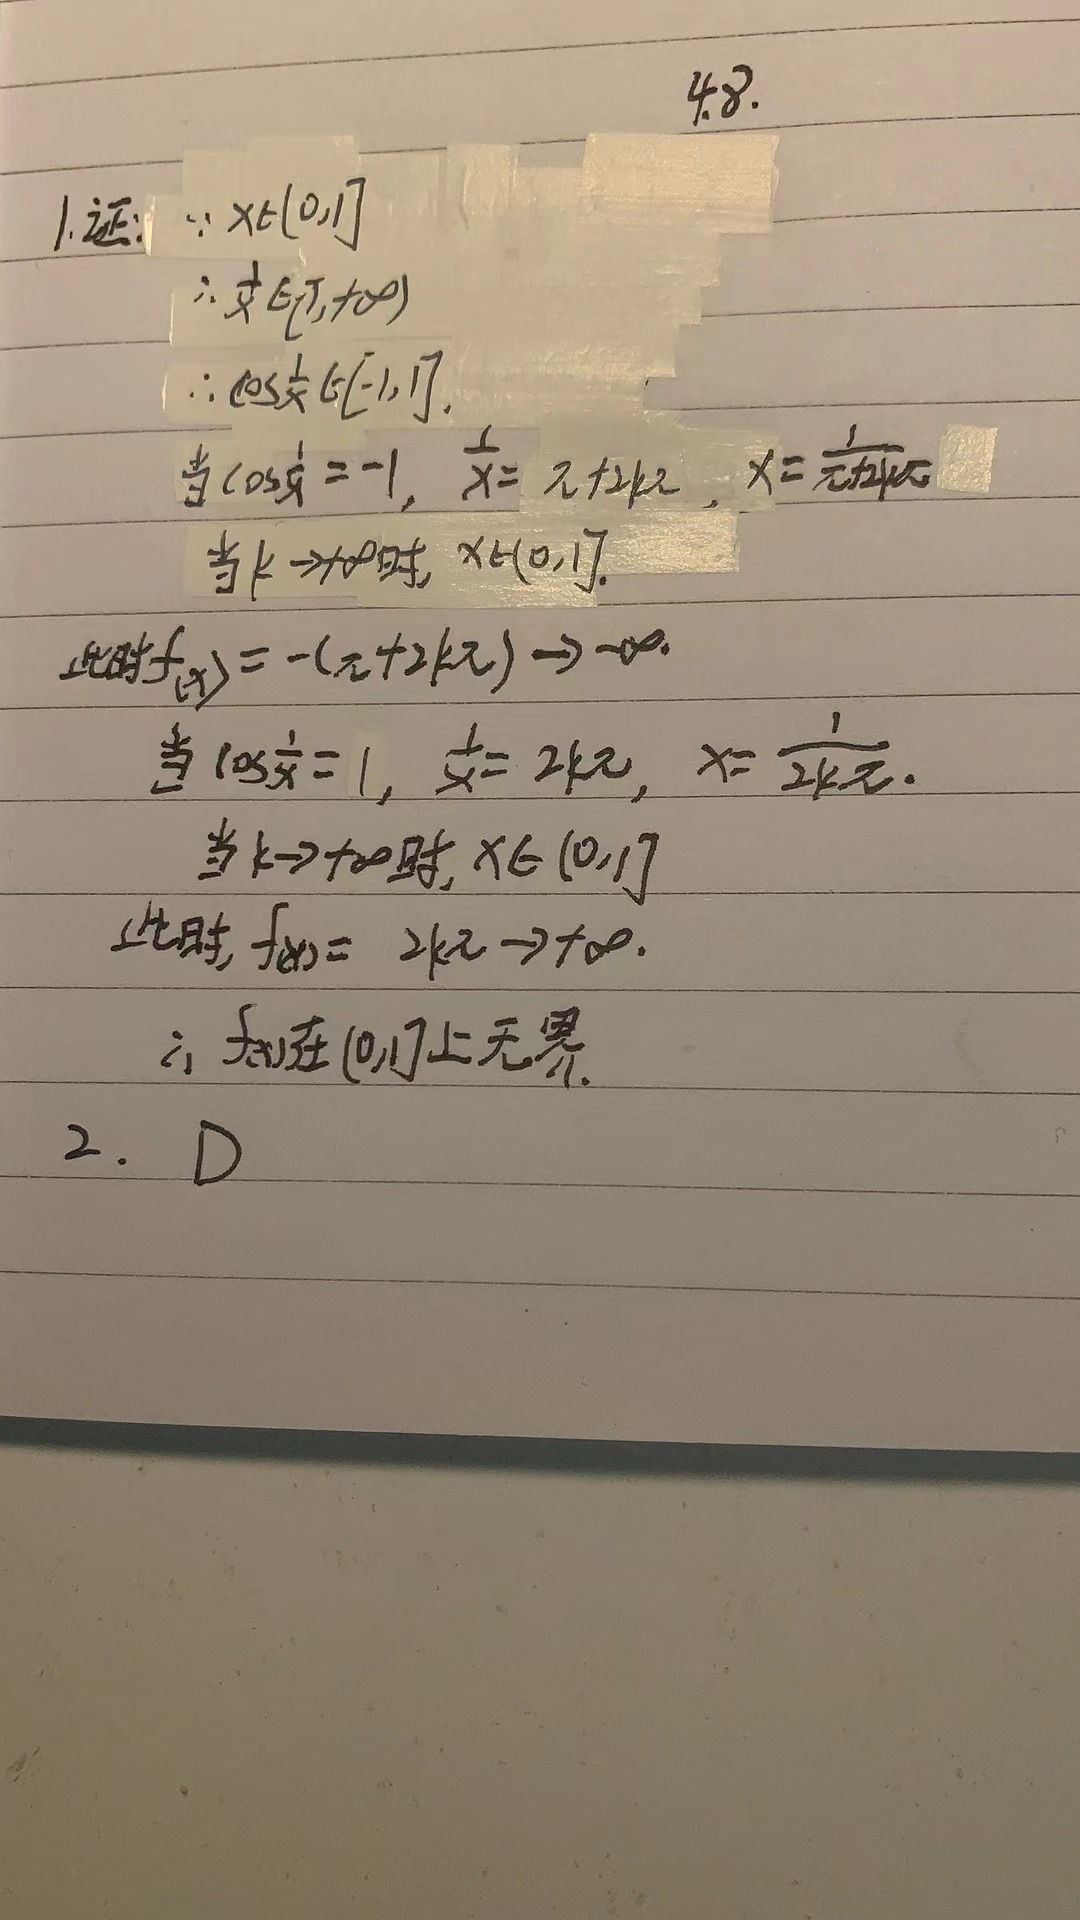 4.8.
1.证: ∵ x∈(0,1]
∴ 1/x ∈[1,+∞)
∴ cos 1/x ∈[-1,1].
当 cos 1/x = -1, 1/x = π+2kπ, x = 1/(π+2kπ)
当 k→+∞时, x∈(0,1].
此时f(x) = -(π+2kπ) → -∞.
当 cos 1/x = 1, 1/x = 2kπ, x = 1/(2kπ).
当 k→+∞时, x∈(0,1]
此时, f(x) = 2kπ → +∞.
∴ f(x)在(0,1]上无界.
2. D